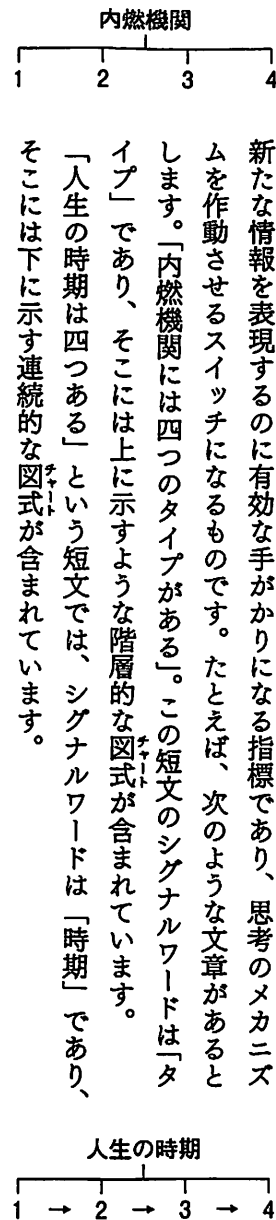 内燃機関
1 2 3 4
新たな情報を表現するのに有効な手がかりになる指標であり、思考のメカニズ
ムを作動させるスイッチになるものです。たとえば、次のような文章があると
します。「内燃機関には四つのタイプがある」。この短文のシグナルワードは「タ
イプ」であり、そこには上に示すような階層的な図式が含まれています。
チャート
「人生の時期は四つある」という短文では、シグナルワードは「時期」であり、
そこには下に示す連続的な図式が含まれています。
チャート
人生の時期
1 → 2 → 3 → 4